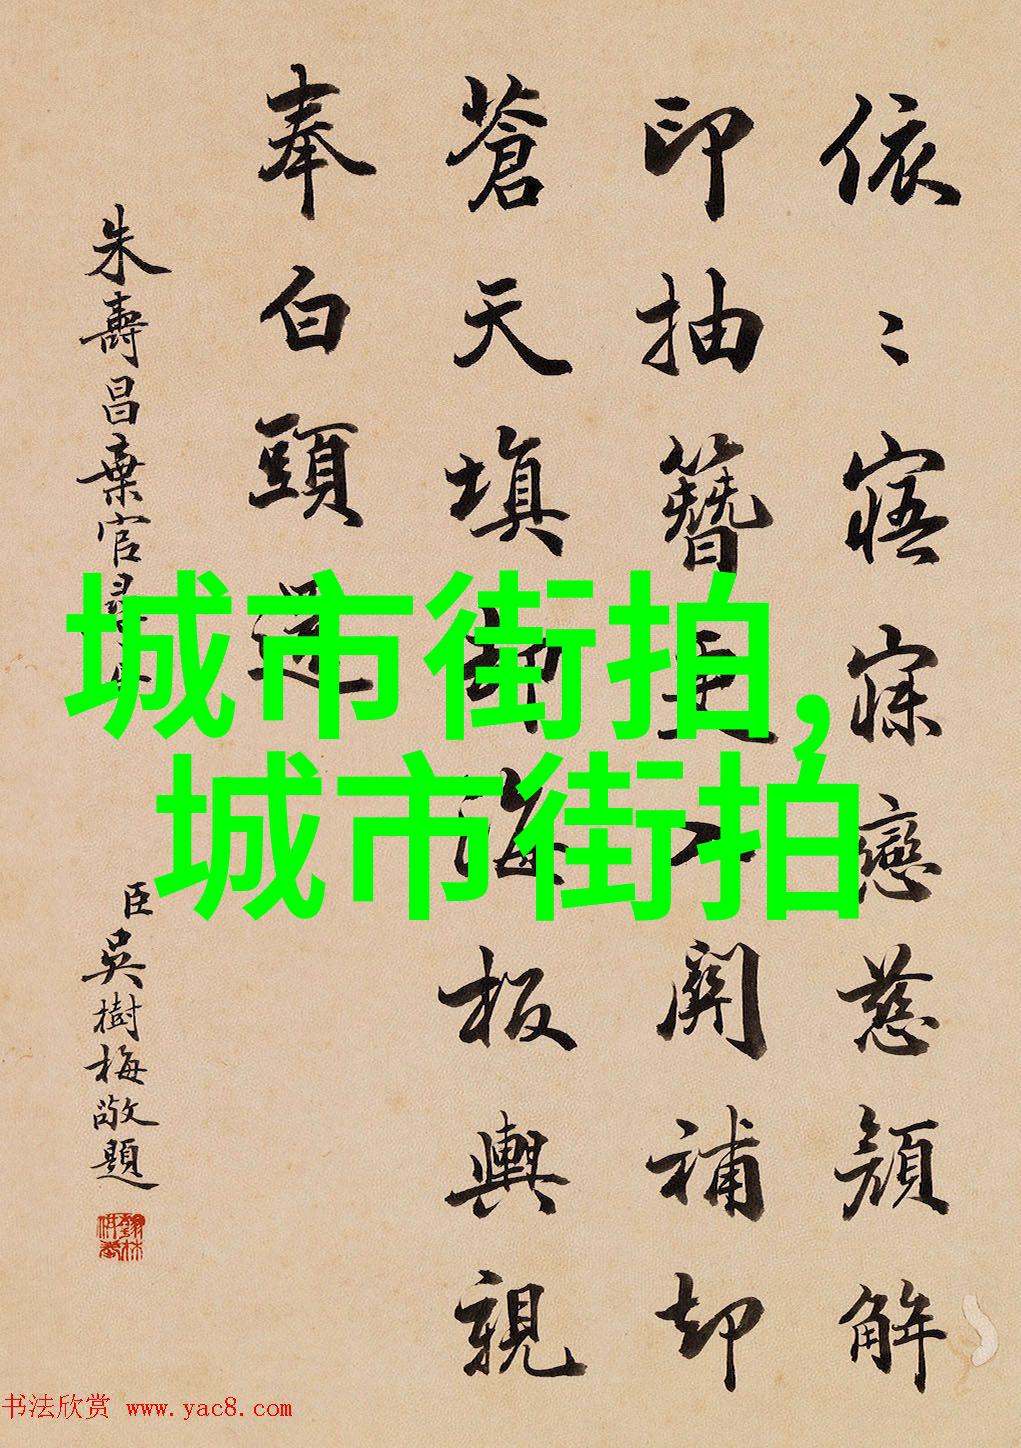 依〻寤寐戀慈顏解
印抽簪入關補却
蒼天填却海板輿親
奉白頭還
朱壽昌棄官尋母
臣吳樹梅敬題
城市街拍,
城市街拍
书法欣赏 www.yac8.com